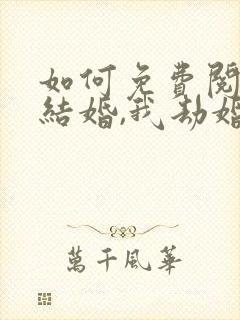 如何免費閱
結婚,我劫婚
萬千風華